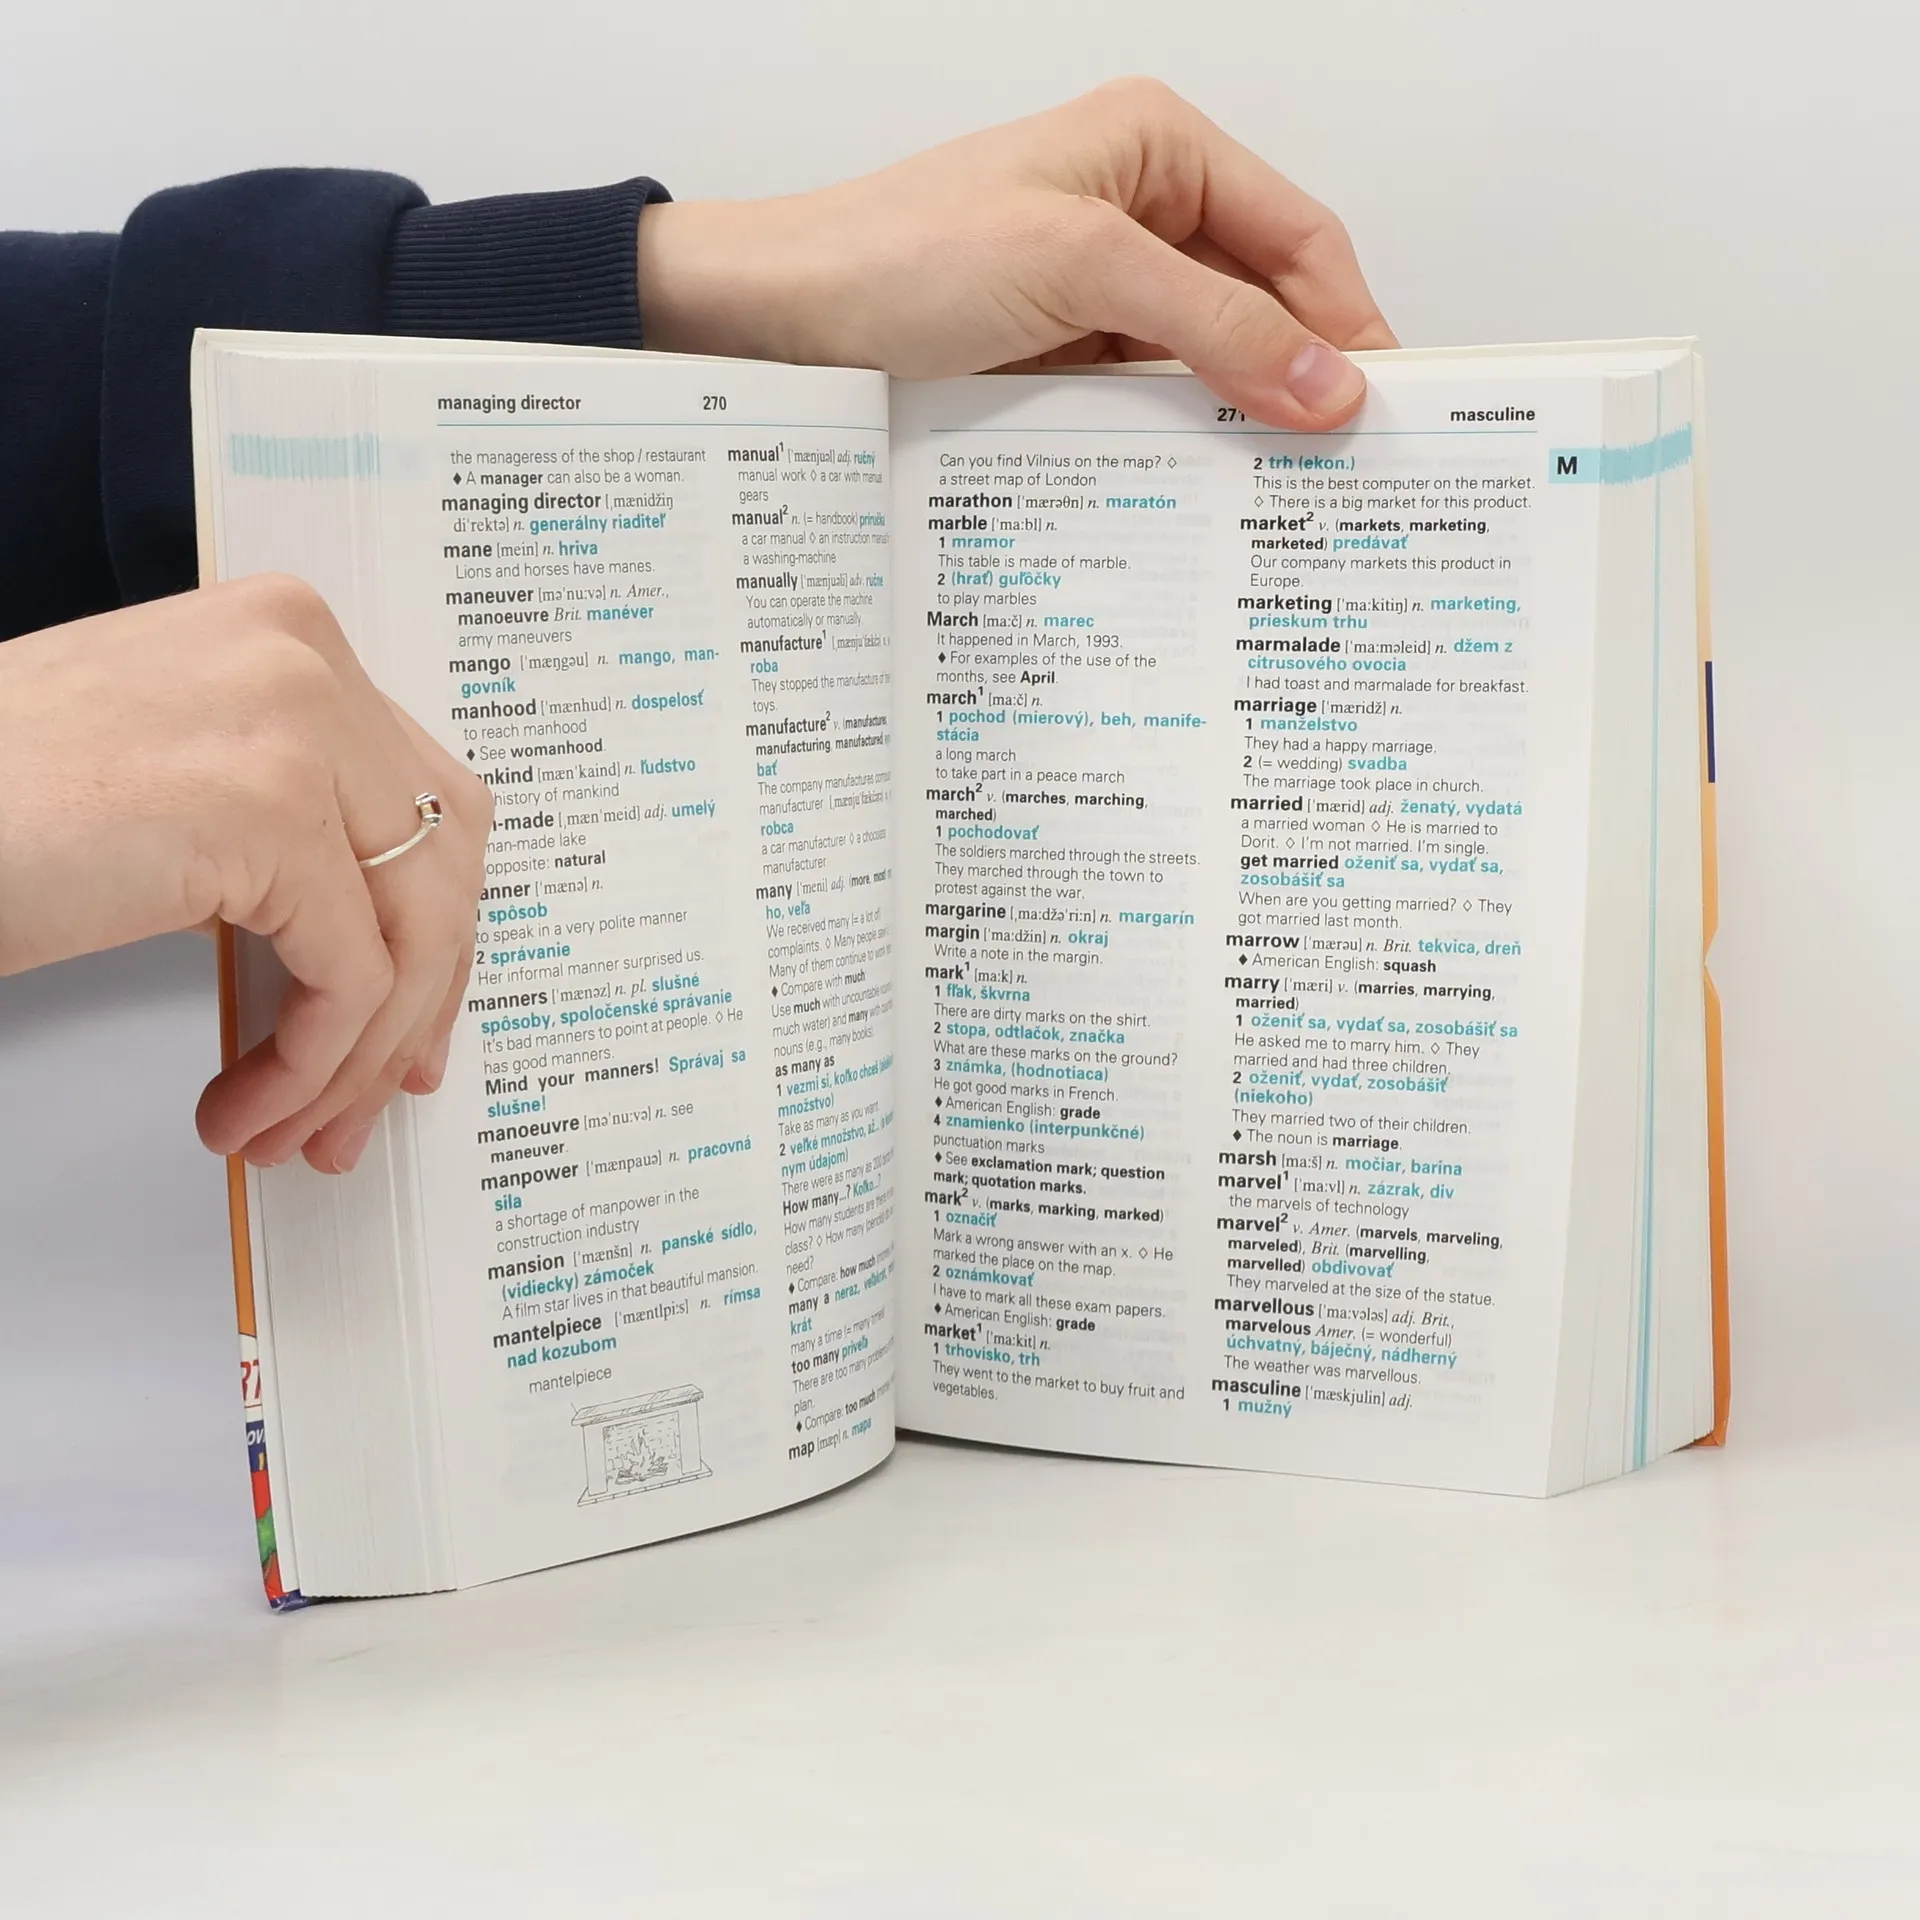 managing director
270
the manageress of the shop / restaurant
♦ A manager can also be a woman.
managing director [ˌmænidžiŋ
diˈrektə] n. generálny riaditeľ
mane [mein] n. hriva
Lions and horses have manes.
maneuver [məˈnu:və] n. Amer.,
manoeuvre Brit. manéver
army maneuvers
mango [ˈmæŋgəu] n. mango, man-
govník
manhood [ˈmænhud] n. dospelosť
to reach manhood
♦ See womanhood.
nkind [mænˈkaind] n. ľudstvo
history of mankind
-made [ˌmænˈmeid] adj. umelý
man-made lake
opposite: natural
anner [ˈmænə] n.
1 spôsob
to speak in a very polite manner
2 správanie
Her informal manner surprised us.
manners [ˈmænəz] n. pl. slušné
spôsoby, spoločenské správanie
It's bad manners to point at people. ◊ He
has good manners.
Mind your manners! Správaj sa
slušne!
manoeuvre [məˈnu:və] n. see
maneuver.
manpower [ˈmænpauə] n. pracovná
sila
a shortage of manpower in the
construction industry
mansion [ˈmænšn] n. panské sídlo,
(vidiecky) zámoček
A film star lives in that beautiful mansion.
mantelpiece [ˈmæntlpi:s] n. rímsa
nad kozubom
mantelpiece
manual¹ [ˈmænjuəl] adj. ručný
manual work ◊ a car with manual
gears
manual² n. (= handbook) príručka
a car manual ◊ an instruction manual
a washing-machine
manually [ˈmænjuəli] adv. ručne
You can operate the machine
automatically or manually.
manufacture¹
roba
They stopped the manufacture of
toys.
manufacture² v. (manufactures,
manufacturing, manufactured)
bať
The company manufactures
manufacturer
robca
a car manufacturer ◊ a chocolate
manufacturer
many [ˈmeni] adj. (more, most
ho, veľa
We received many (= a lot of)
complaints. ◊ Many people
Many of them continue to work
♦ Compare with much
Use much with uncountable
much water) and many with
nouns (e.g., many books).
as many as
1 vezmi si, koľko chceš
množstvo)
Take as many as you want.
2 veľké množstvo, až...
nym údajom)
There were as many as 200
How many...? Koľko...?
How many students are there
class? ◊ How many
need?
♦ Compare: how much
many a neraz,
krát
many a time (= many times)
too many priveľa
There are too many
plan.
♦ Compare: too much
map [mæp] n. mapa
271
masculine
Can you find Vilnius on the map? ◊
a street map of London
marathon [ˈmærəθn] n. maratón
marble [ˈma:bl] n.
1 mramor
This table is made of marble.
2 (hrať) guľôčky
to play marbles
March [ma:č] n. marec
It happened in March, 1993.
♦ For examples of the use of the
months, see April.
march¹ [ma:č] n.
1 pochod (mierový), beh, manife-
stácia
a long march
to take part in a peace march
march² v. (marches, marching,
marched)
1 pochodovať
The soldiers marched through the streets.
They marched through the town to
protest against the war.
margarine [ˌma:džəˈri:n] n. margarín
margin [ˈma:džin] n. okraj
Write a note in the margin.
mark¹ [ma:k] n.
1 fľak, škvrna
There are dirty marks on the shirt.
2 stopa, odtlačok, značka
What are these marks on the ground?
3 známka, (hodnotiaca)
He got good marks in French.
♦ American English: grade
4 znamienko (interpunkčné)
punctuation marks
♦ See exclamation mark; question
mark; quotation marks.
mark² v. (marks, marking, marked)
1 označiť
Mark a wrong answer with an x. ◊ He
marked the place on the map.
2 oznámkovať
I have to mark all these exam papers.
♦ American English: grade
market¹ [ˈma:kit] n.
1 trhovisko, trh
They went to the market to buy fruit and
vegetables.
2 trh (ekon.)
This is the best computer on the market.
◊ There is a big market for this product.
market² v. (markets, marketing,
marketed) predávať
Our company markets this product in
Europe.
marketing [ˈma:kitiŋ] n. marketing,
prieskum trhu
marmalade [ˈma:məleid] n. džem z
citrusového ovocia
I had toast and marmalade for breakfast.
marriage [ˈmæridž] n.
1 manželstvo
They had a happy marriage.
2 (= wedding) svadba
The marriage took place in church.
married [ˈmærid] adj. ženatý, vydatá
a married woman ◊ He is married to
Dorit. ◊ I'm not married. I'm single.
get married oženiť sa, vydať sa,
zosobášiť sa
When are you getting married? ◊ They
got married last month.
marrow [ˈmærəu] n. Brit. tekvica, dreň
♦ American English: squash
marry [ˈmæri] v. (marries, marrying,
married)
1 oženiť sa, vydať sa, zosobášiť sa
He asked me to marry him. ◊ They
married and had three children.
2 oženiť, vydať, zosobášiť
(niekoho)
They married two of their children.
♦ The noun is marriage.
marsh [ma:š] n. močiar, barina
marvel¹ [ˈma:vl] n. zázrak, div
the marvels of technology
marvel² v. Amer. (marvels, marveling,
marveled), Brit. (marvelling,
marvelled) obdivovať
They marveled at the size of the statue.
marvellous [ˈma:vələs] adj. Brit.,
marvelous Amer. (= wonderful)
úchvatný, báječný, nádherný
The weather was marvellous.
masculine [ˈmæskjulin] adj.
1 mužný
M